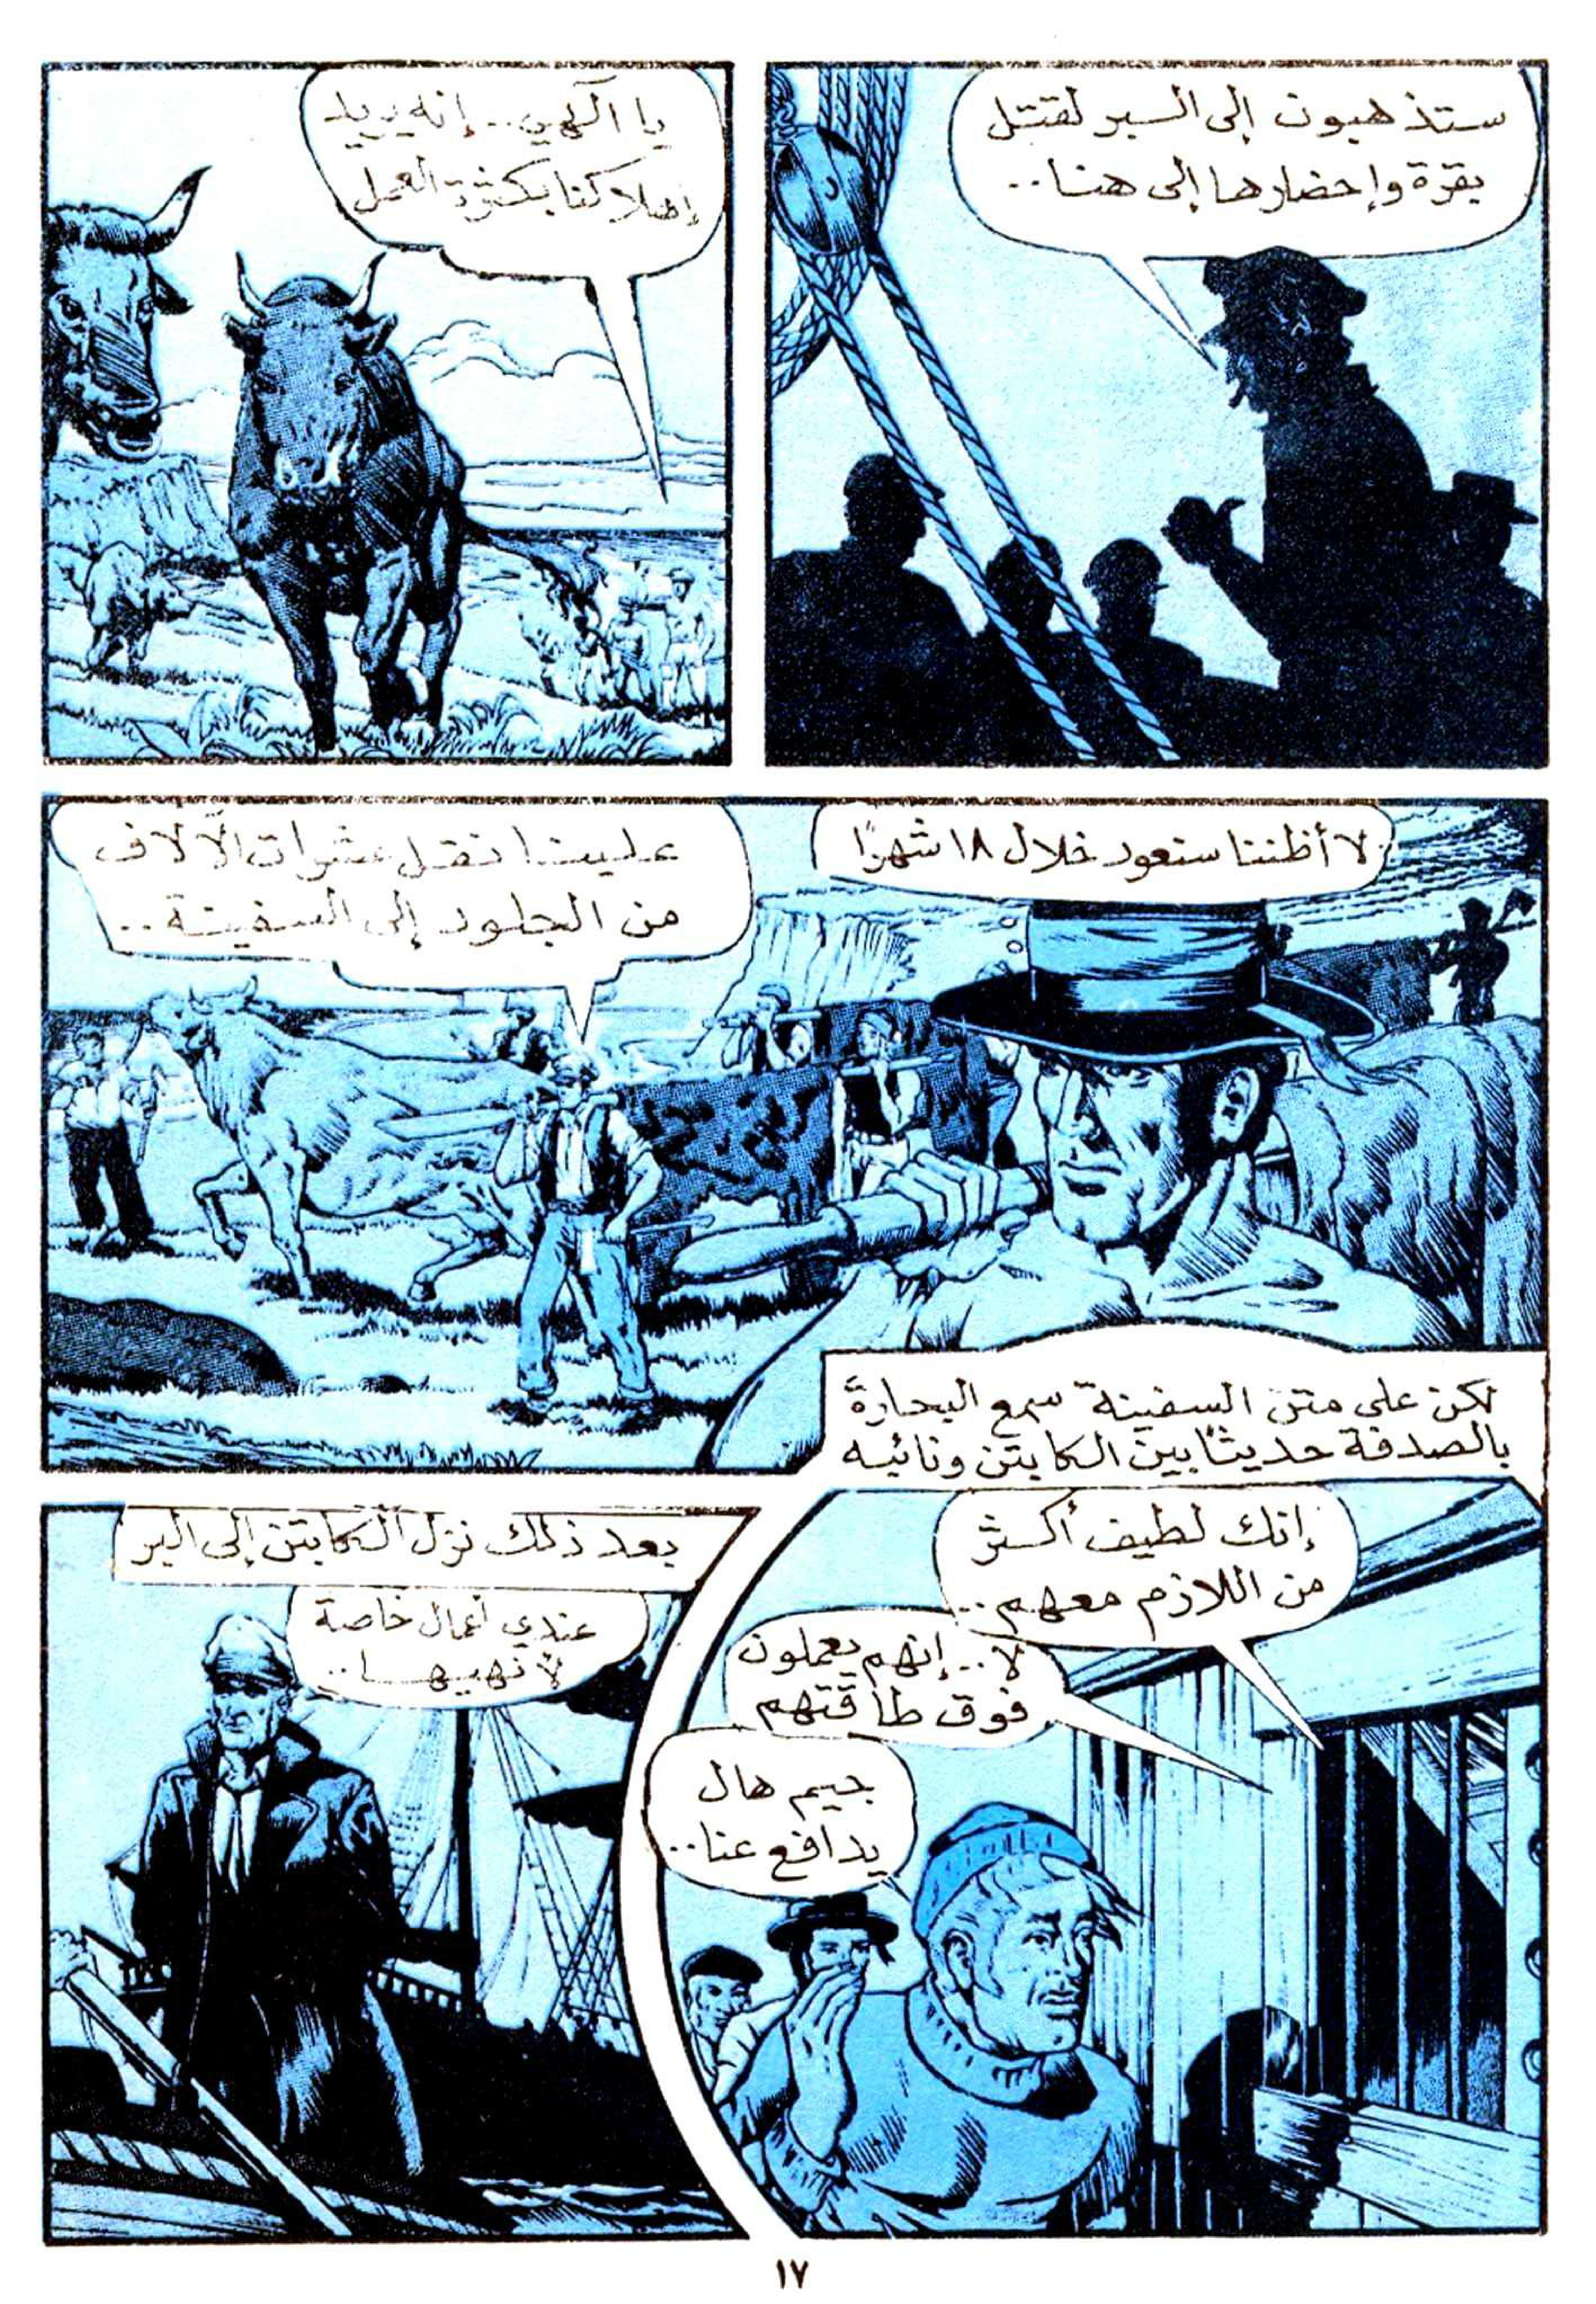 ستذهبون إلى البر لقتل
بقرة وإحضارها إلى هنا..
يا الهي.. إنه يريد
إهلاكنا بكثرة العمل
لا أظننا سنعود خلال ١٨ شهرًا
علينا نقل عشرات الآلاف
من الجلود إلى السفينة..
لكن على متن السفينة سمع البحارة
بالصدفة حديثًا بين الكابتن ونائبه
إنك لطيف أكثر
من اللازم معهم..
لا.. إنهم يعملون
فوق طاقتهم
جيم هال
يدافع عنا..
بعد ذلك نزل الكابتن إلى البر
عندي أعمال خاصة
لأنهيها..
١٧